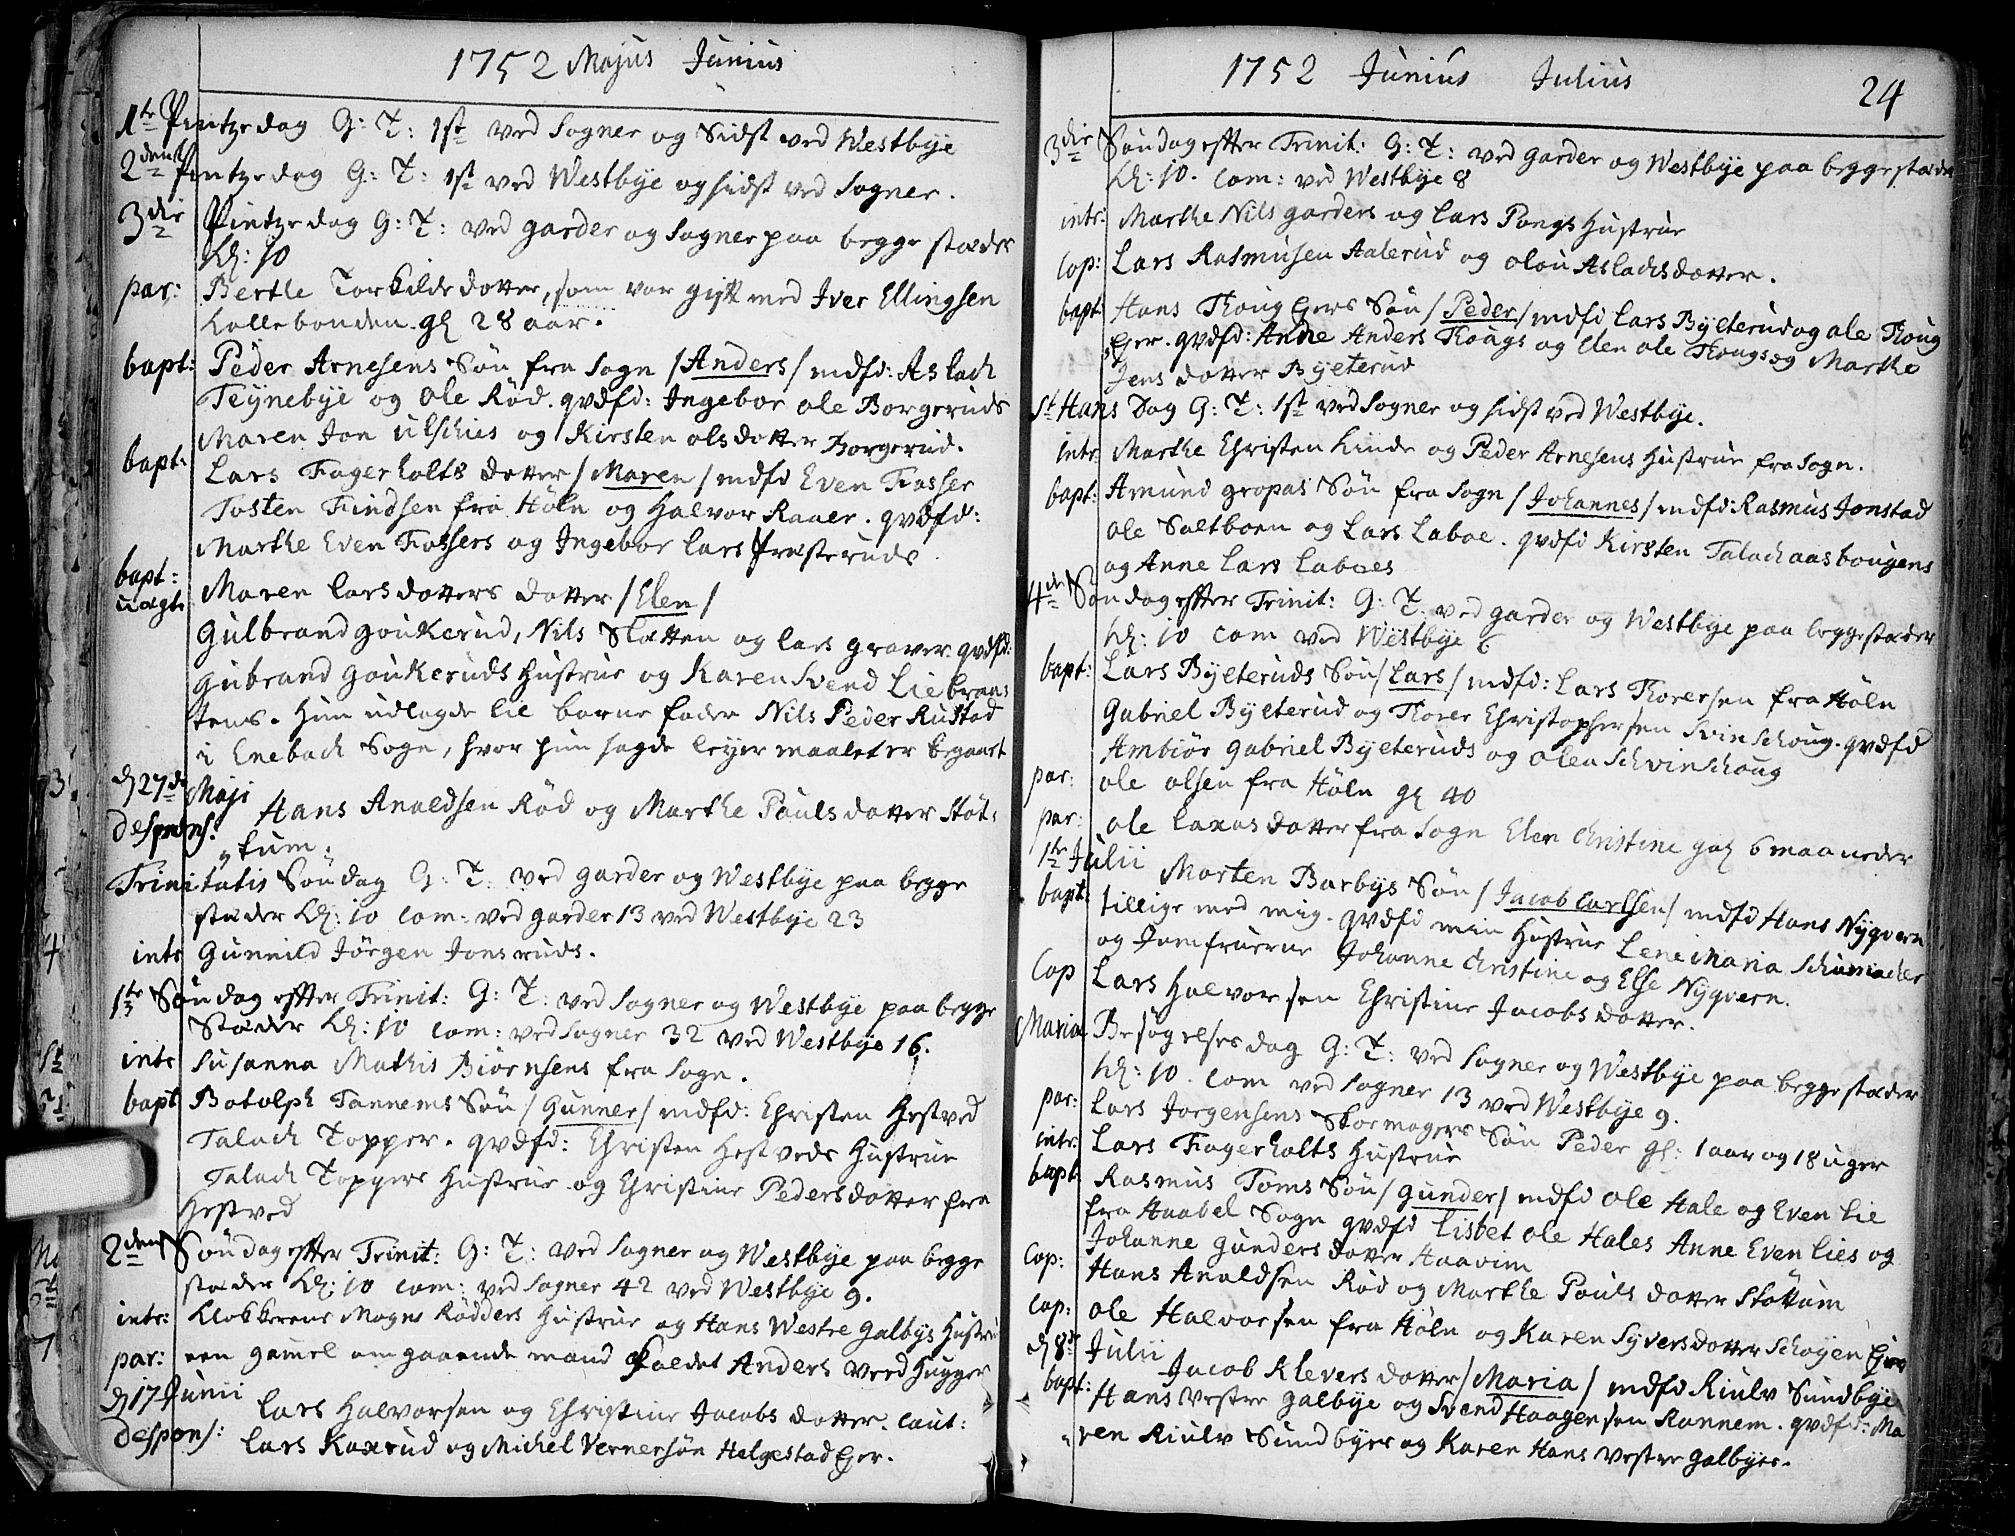 1752 Majus Junius
1te Pintzedag G: T: 1st ved Sogner og Sidst ved Westbÿe
2den Pintzedag G: T: 1st ved Westbÿe og sidst ved Sogner.
3die Pintzedag G: T: ved garder og Sogner paa begge stæder
Kl: 10
par: Berthe Torkilds dotter, som var gift med Iver Ellingsen
Kollebonden. gl 28 aar.
bapt: Peder Arnesens Søn fra Sogn /Anders/ mdfd: Aslach
Teÿnebÿe og Ole Rød. qvdfd: Ingebor ole Borgeruds
Maren Jon Ulschies og Kirsten olsdotter Borgerud.
bapt. Lars Fagerholts dotter /Maren/ mdfd Even Fosser
Tosten Findsen fra Høln og Halvor Raaer. qvdfd:
Marthe Even Fossers og Ingebor Lars Præsteruds
bapt: uægt. Maren Larsdotters dotter /Elen/
Gulbrand goukerud, Nils Slotten og Lars graver. qvdfd:
Gubrand goukeruds Hustrue og Karen Svend Lie braa
tens. Hun udlagde til barne fader Nils Peder Rustad
i Enebach Sogn, hvor hun sagde leyermaalet er begaaet
d 27de Maji
despons. Hans Analdsen Rød og Marthe Pouls dotter Støt-
tum.
Trinitatis Søndag G: T: ved garder og Westbÿe paa begge
stæder Kl: 10 com: ved garder 13 ved Westbÿe 23
intr Gunnild Jørgen Jonsruds.
1te Søndag effter Trinit: G: T: ved Sogner og Westbÿe paa begge
Stæder Kl: 10 com: ved Sogner 32 ved Westbÿe 16.
intr Susanna Mathis Biørnsens fra Sogn.
bapt Botolph Tannems Søn /Gunner/ mdfd: Christen Hestved
Talach Topper. qvdfd: Christen Hestveds Hustrue
Talach Toppers Hustrue og Christine Pedersdotter fra
Hestved
2den Søndag effter Trinit: G: T: ved Sogner og Westbÿe paa begge
stæder Kl: 10 com: ved Sogner 42 ved Westbÿe 9.
intr: Klokkerens Mogns Rødders Hustrue og Hans Westre Galbÿs Hustru
par: een gamel omgaaende mand Kaldet Anders Veedhugger
d 17 Junii
despons: Lars Halvorsen og Christine Jacobs dotter. Caut:
Lars Kaxrud og Michel Vernersøn Helgestad Ejer.
1752 Junius Julius 24
3die Søndag effter Trinit: G: T: ved garder og Westbÿe paa begge stæder
Kl: 10. com: ved Westbÿe 8
intr: Marthe Nils garders og Lars Pongs Hustrue
Cop: Lars Rasmusen Aalerud og olou Aslachsdotter.
bapt Hans Thoug Ejers Søn /Peder/ mdfd Lars Bÿeterud og ole Thoug
Ejer. qvdfd: Anne Anders Thougs og Elen ole Thougs og Marthe
Jens dotter Bÿeterud
St Hans Dag G: T: 1st ved Sogner og sidst ved Westbÿe.
intr: Marthe Christen Kinde og Peder Arnesens Hustrue fra Sogn.
bapt: Amund gropas Søn fra Sogn /Johannes/ mdfd: Rasmus Jonstad
ole Saltboen og Lars Laboe. qvdfd Kirsten Talach aasbougens
og Anne Lars Laboes
4de Søndag effter Trinit: G: T: ved garder og Westbÿe paa begge stæder
Kl: 10 com ved Westbÿe 6
bapt: Lars Bÿeteruds Søn /Lars/ mdfd: Lars Thorersen fra Høln
Gabriel Bÿeterud og Thorer Christophersen Svinschoug. qvdfd
Ambiør gabriel Bÿeteruds og olea Schvinschoug
par: ole olsen fra Høln gl 40
par: ole Laxasdotter fra Sogn Elen Christine gal 6 maaneder
1te Julii
bapt: Morten Barbÿs Søn /Jacob Carlsen/ mdfd Hans Nÿgvern
tillige med mig. qvdfd min Hustrue Lene Maria Schumacher
og Jomfruerne Johanne Christine og Else Nÿgvern.
Cop Lars Halvorsen Christine Jacobs dotter.
Maria Besøgelses dag G: T: ved Sogner og Westbÿe paa begge stæder
Kl: 10. com ved Sogner 13 ved Westbÿe 9.
par: Lars Jorgensens Skormagers Søn Peder gl: 1 aar og 18 uger
intr: Lars Fagerholts Hustrue
bapt Rasmus Toms Søn /Gunder/ mdfd Ole Hale og Even Lie
fra Haabel Sogn qvdfd Lisbet ole Hales Anne Even Lies og
Johanne gunders dotter Haavim
Cop: Hans Analdsen Rød og Marthe Pouls dotter Støttum
Cop: ole Halvorsen fra Høln og Karen Sÿversdotter Schøyen Ejer
d 8de Julii
bapt: Jacob Klevers dotter /Maria/ mdfd Riulv Sundbÿe
Hans Vestre galbÿe og Svend Haagensen Rannem. qvdfd: Ma
ren Riulv Sundbÿes og Karen Hans Vestre galbÿes.